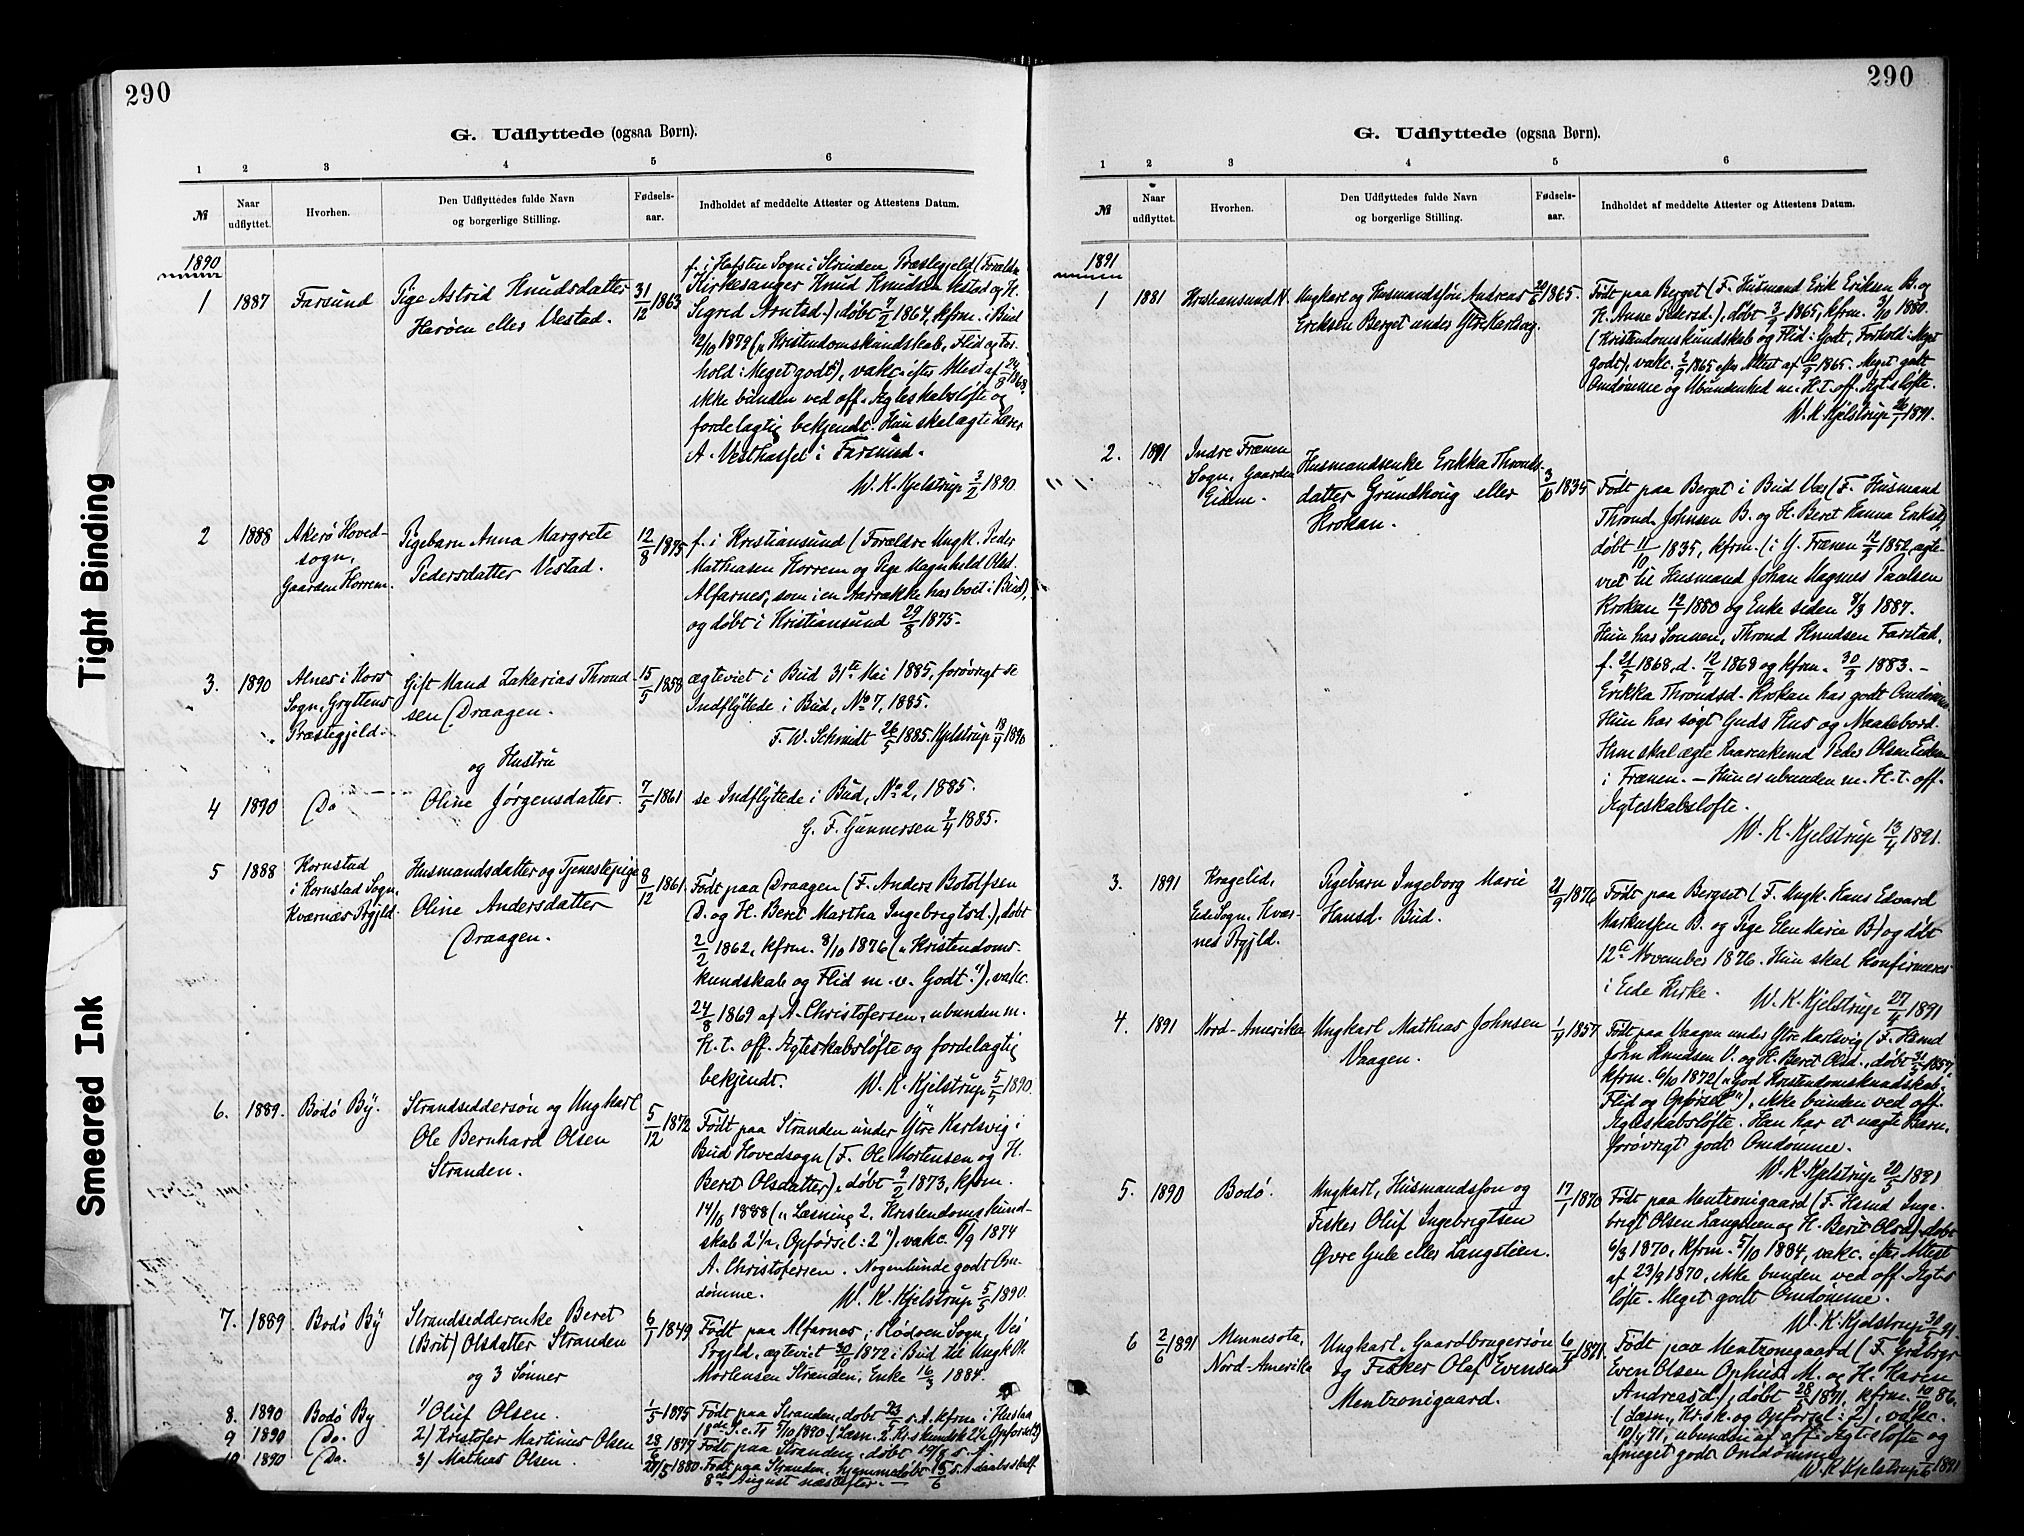 290
G. Udflyttede (ogsaa Børn).
1 2 3 4 5 6
№ Naar udflyttet. Hvorhen. Den Udflyttedes fulde Navn og borgerlige Stilling. Fødsels-aar. Indholdet af meddelte Attester og Attestens Datum.
1890
1 1887 Farsund Pige Astrid Knudsdatter 31/12 1863
Harøen eller Vestad.
f. i Hafsten Sogn i Strinden Præstegjeld (Forældre
Kirkesanger Knud Knudsen Vestad og H.
Sigrid Arntsd.), døbt 7/2 1864, kfrm. i Bud
12/10 1879 („Kristendomskundskab, Flid og For-
hold: Meget godt), vakc. efter Attest af 24/8 1868.
ikke bunden ved off. Ægteskabsløfte og
fordelagtig bekjendt. Hun skal ægte Lærer
A. Vesthassel i Farsund.
W. K. Kjelstrup 3/2 1890.
2 1888 Akerø Hoved- Pigebarn Anna Margrete 12/8 1875
sogn, Pedersdatter Vestad.
Gaarden Horrem.
f. i Kristiansund (Forældre Ungk. Peder
Mathiasen Horrem og Pige Magnhild Olsd.
Alfarnes, som i en Aarrække har boet i Bud),
og døbt i Kristiansund 29/8 1875.
3. 1890 Alnes i Kors Gift Mand Zakarias Thrond- 15/5 1858
Sogn, Gryttens sen Draagen.
Præstegjeld.
og Hustru
ægteviet i Bud 31te Mai 1885, forøvrigt se
Indflyttede i Bud, No 7, 1885.
F. W. Schmidt 26/5 1885. Kjelstrup 18/4 1890
4 1890 Do Oline Jørgensdatter. 7/5 1861
se Indflyttede i Bud, No 2, 1885.
G. F. Gunnersen 9/4 1885.
5 1888 Kornstad Husmandsdatter og Tjenestepige 8/12 1861
i Kornstad Sogn, Oline Andersdatter
Kvernæs Prgjld. Draagen.
Født paa Draagen (F. Anders Botolfsen
D. og H. Beret Martha Ingebrigtsd.), døbt
2/2 1862, kfrm. 8/10 1876 („Kristendoms-
kundskab og Flid m. v. Godt."), vakc.
24/8 1869 af A. Christofersen, ubunden m.
H. t. off. Ægteskabsløfte og fordelagtig
bekjendt. W. K. Kjelstrup 5/5 1890.
6. 1889. Bodø By. Strandsiddersøn og Ungkarl 5/12 1872
Ole Bernhard Olsen
Stranden.
Født paa Stranden under Ytre Karlsvig i
Bud Hovedsogn (F. Ole Mortensen og H.
Beret Olsdatter), døbt 9/2 1873, kfrm.
14/10 1888 („Læsning 2, Kristendomskund-
skab 2½, Opførsel: 2"), vakc. 6/9 1874
A. Christofersen. Nogenlunde godt Om-
dømme. W. K. Kjelstrup 5/5 1890.
7. 1889. Bodø By Strandsidderenke Beret 6/1 1849
(Brit) Olsdatter Stranden
og 3 Sønner
Født paa Alfarnes i Rødven Sogn, Vés
Prgjld., ægteviet 30/10 1872 i Bud til Ungk. Ol.
Mortensen Stranden, Enke 16/3 1884.
8. 1890 Bodø By 1/ Oluf Olsen. 1/5 1875 Født paa Stranden, døbt 23/5 s. A. kfrm. i Hustad
18de S. e. Tr. 5/10 1890. (Læsn. 2. Kr. skundsk. 2½ Opførsel 2)
9 1890 Do. 2) Kristofer Martinus Olsen 28/6 1877 Født paa Stranden, døbt 19/8 s. A.
10 1890 Do. 3/ Mathias Olsen. 20/5 1880. Født paa Stranden, hjemmedøbt 15/6 s. A daabsstadf.
8de August næstefter.
Tight Binding
Smeared Ink
290
G. Udflyttede (ogsaa Børn).
1 2 3 4 5 6
№ Naar udflyttet. Hvorhen. Den Udflyttedes fulde Navn og borgerlige Stilling. Fødsels-aar. Indholdet af meddelte Attester og Attestens Datum.
1891
1 1881 Kristiansund N. Ungkarl og Husmandsføn Andreas 20/6 1865.
Eriksen Berget under Ytre Karlsvg.
Født paa Berget (F. Husmand Erik Eriksen B. og
H. Anne Pedersd.), døbt 3/9 1865, kfrm. 3/10 1880.
(Kristendomskundskab og Flid: Godt, Forhold: Meget
godt), vakc. 2/9 1865 efter Attest af 10/9 1865. Meget godt
Omdømme og Ubundenhed m. H. t. off. Ægt.sløfte.
W. K. Kjelstrup 26/1 1891.
2. 1891 Indre Frænen Husmandsenke Erikka Thronds- 3/10 1835
Sogn, Gaarden datter Grundhoug eller
Eidem. Krokan.
Født paa Berget i Bud Vær (F. Husmand
Thrond Johnsen B. og H. Beret Hanna Eriksd.,
døbt 11/10 1835, kfrm. (i Y. Frænen 12/9 1852, ægte-
viet til Husmand Johan Magnus Paulsen
Krokan 12/1 1880 og Enke siden 8/3 1887.
Hun har Sønnen, Thrond Knudsen Farstad,
f. 21/5 1868, d. 12/7 1868 og kfrm. 30/9 1883. –
Erikka Throndsd. Krokan har godt Omdømme
Hun har søgt Guds Hus og Naadebord.
Hun skal ægte Kaarenkemd Peder Olsen Eidem
i Frænen. – Hun er ubunden m. H. t. off.
Ægteskabsløfte.
W. K. Kjelstrup 13/4 1891.
3. 1891 Kragelid, Pigebarn Ingeborg Marie 21/9 1876
Eide Sogn, Kvær- Hansd. Bud.
nes Prgjld.
Født paa Berget (F. Ungk. Hans Edvard
Markussen B. og Pige Elen Marie B) og døbt
12te November 1876. Hun skal konfirmeres
i Eide Kirke. W. K. Kjelstrup 27/4 1891
4. 1891 Nord-Amerika Ungkarl Mathias Johnsen 1/4 1857
Vaagen.
Født paa Vaagen under Ytre Karlsvig (F. Hsmd
John Knudsen V. og H. Beret Olsd., døbt 31/5 1857,
kfrm. 6/10 1872 („God Kristendomskundskab,
Flid og Opførsel"), ikke bunden ved off.
Ægteskabsløfte. Han har et uægte Barn,
forøvrigt godt Omdømme.
W. K. Kjelstrup 20/5 1891
5. 1890 Bodø. Ungkarl, Husmandsføn og 17/1 1870
Fisker Oluf Ingebrigtsen
Øvre Gule eller Langslien.
Født paa Mentzonigaard (F. Hsmd Inge-
brigt Olsen Langslien og H. Berit Olsd), døbt
6/3 1870, kfrm. 5/10 1884, vakc. efter Attest
af 23/9 1870, ikke bunden ved off. Ægtesk.
løfte. Meget godt Omdømme.
W. K. Kjelstrup 30/5 91
6 2/6 1891 Minnesota, Ungkarl, Gaardbrugersøn 6/4 1871.
Nord-Amerika og Fisker Olaf Evensen
Mentzonigaard.
Født paa Mentzonegaard (F. Grdbrgr
Even Olsen Ophus M. og H. Karen
Andreasd.), døbt 28/5 1871, kfrm. 10/10 86.
(Læsn., Kr.sk. og Opførsel: 2), vakc.
10/4 71, ubunden af off. Ægteskløfte og
afmeget godt Omdømme.
W. K. Kjelstrup 1/6 1891